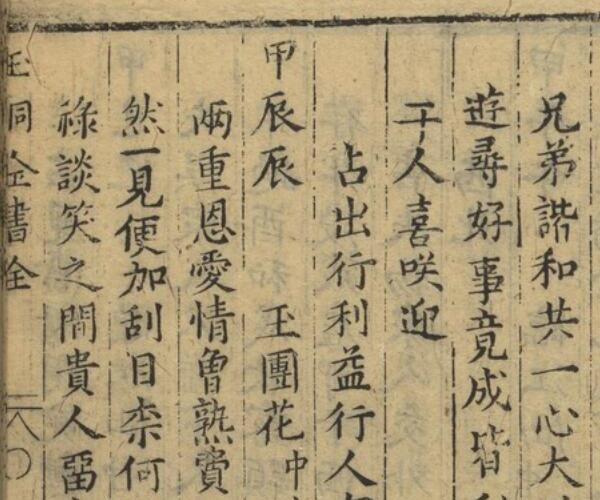 兄弟諧和共一心大
遊尋好事竟成皆
于人喜咲迎
占出行利益行人
甲辰辰　玉團花中
兩重恩愛情曾熟賞
然一見便加刮目柰何
祿談笑之間貴人畱
玉洞金書全　一八〇